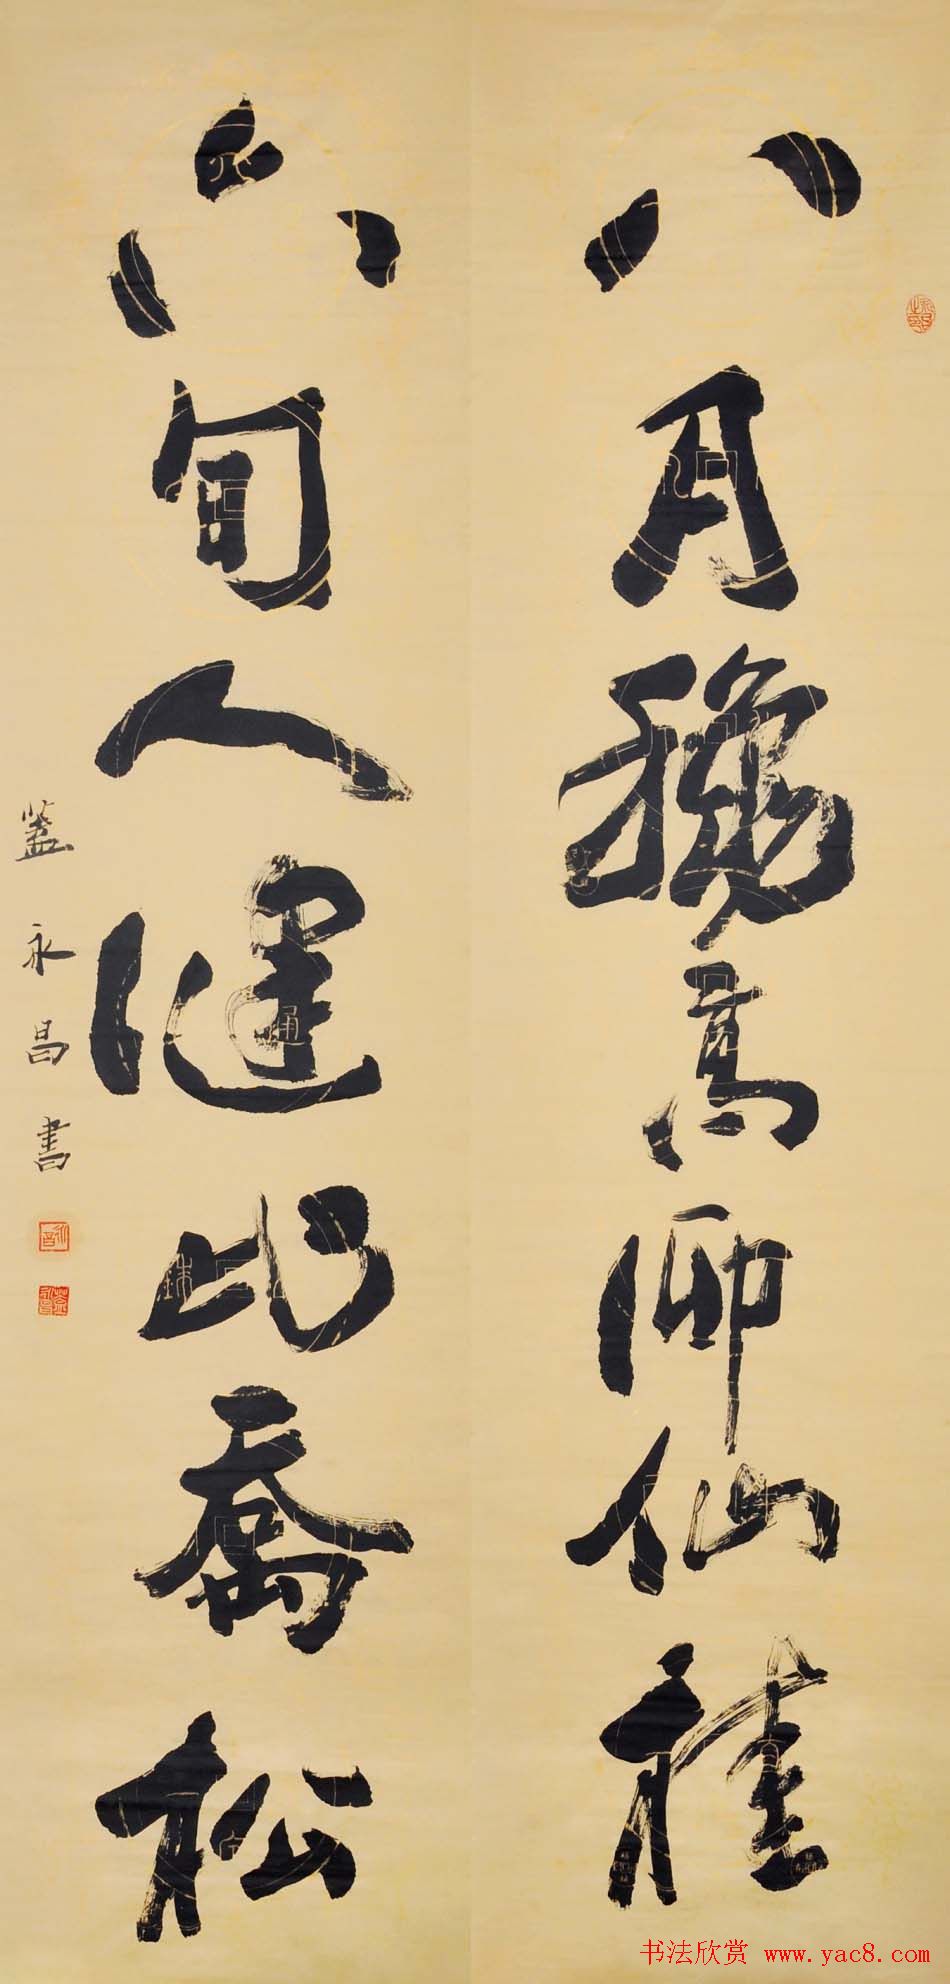 八月龝高仰仙桂
六旬人健比喬松
蓋永昌書
书法欣赏 www.yac8.com